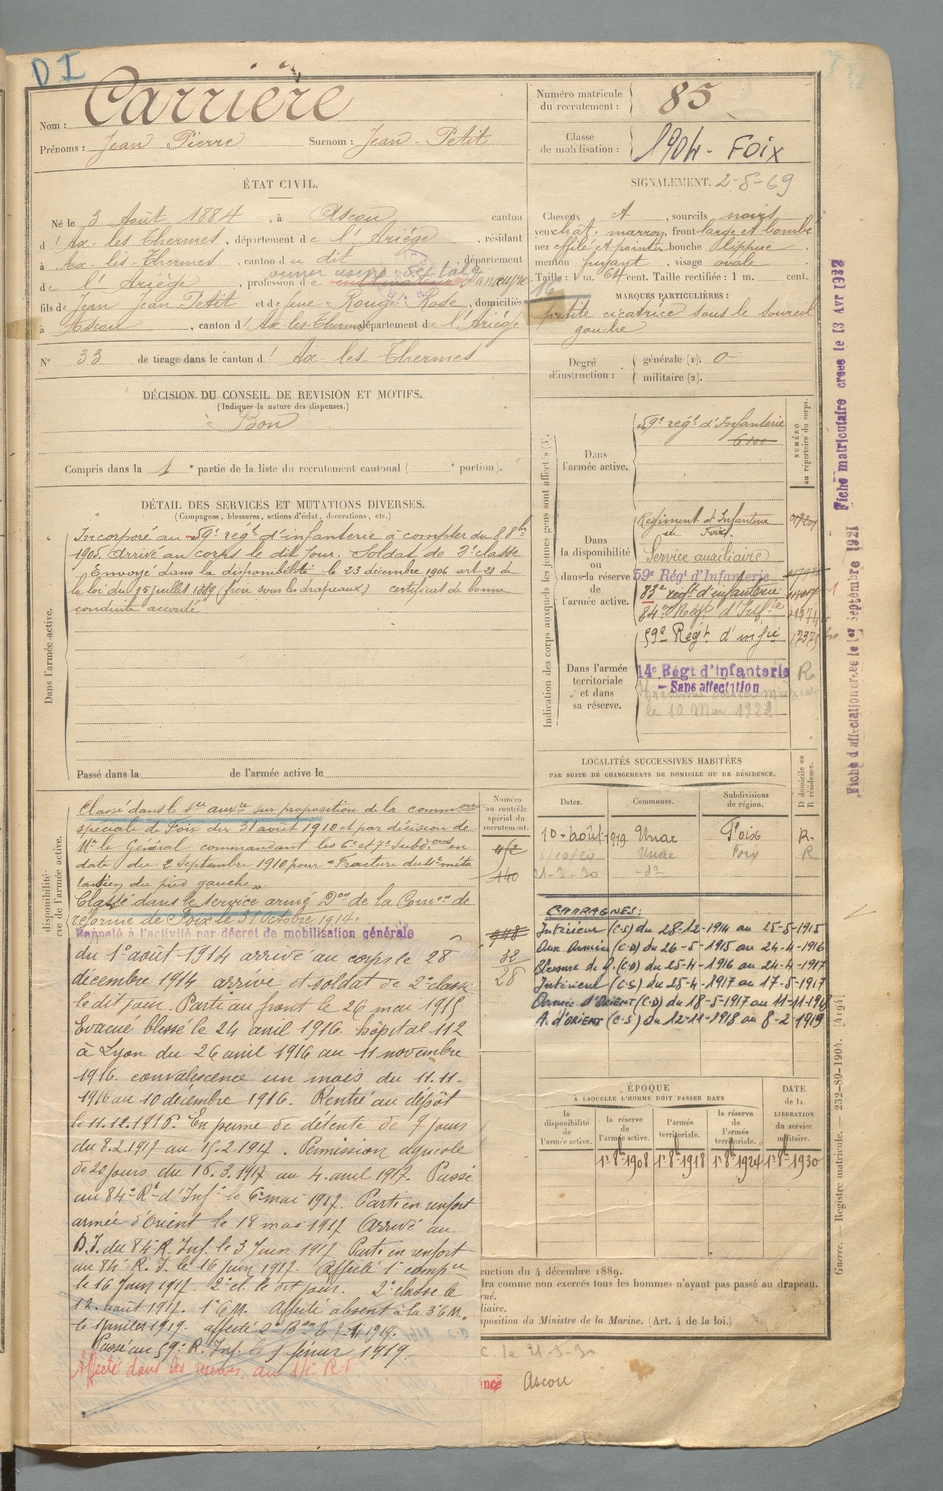 D I
Nom : Carrière
Prénoms : Jean Pierre Surnom : Jean-Petit
ÉTAT CIVIL.
Né le 3 Août 1884, à Ascou, canton
d'Ax-les-Thermes, département de l'Ariège, résidant
à Ax-les-Thermes, canton du dit, département
de l'Ariège, profession de
fils de Jean Jean Petit et de feue Rouge Rose, domiciliés
à Ascou, canton d'Ax-les-Thermes département de l'Ariège
N° 33 de tirage dans le canton d'Ax-les-Thermes
DÉCISION DU CONSEIL DE REVISION ET MOTIFS.
(Indiquer la nature des dispenses.)
Bon
Compris dans la 1e partie de la liste du recrutement cantonal ( e portion).
DÉTAIL DES SERVICES ET MUTATIONS DIVERSES.
(Campagnes, blessures, actions d'éclat, décorations, etc.)
Dans l'armée active.
Incorporé au 59e régt d'infanterie à compter du 8 8bre
1905. Arrivé au corps le dit jour. Soldat de 2e classe
Envoyé dans la disponibilité le 23 décembre 1906 art 21 de
la loi du 15 juillet 1889 (frère sous les drapeaux) certificat de bonne
conduite accordé
Passé dans la de l'armée active le
disponibilité
rve de l'armée active.
Classé dans le sce auxre sur proposition de la common
spéciale de Foix du 31 août 1910 et par décision de
Mr le Général commandant les 6e et 7e Subdons en
date du 2 Septembre 1910 pour "Fracture du 1er méta
tarsien du pied gauche".
Classé dans le service armé Don de la Comon de
réforme de Foix le 31 octobre 1914.
Rappelé à l'activité par décret de mobilisation générale
du 1er août 1914 arrivé au corps le 28
décembre 1914 arrivé et soldat de 2e classe
le dit jour. Parti au front le 26 mai 1915
Evacué blessé le 24 avril 1916. hôpital 112
à Lyon du 26 avril 1916 au 11 novembre
1916. convalescence un mois du 11.11.
1916 au 10 décembre 1916. Rentré au dépôt
le 11.12.1916. En perme de détente de 7 jours
du 8.2.1917 au 15.2.1917. Permission agricole
de 20 jours du 16.3.1917 au 4 avril 1917. Passé
au 84e Rt d'Inf. le 6 mai 1917. Parti en renfort
armée d'Orient le 18 mai 1917. Arrivé au
D.I. du 84e R. Inf. le 3 Juin 1917. Parti en renfort
au 84e R. I. le 16 juin 1917. Affecté 1e compie
le 16 Juin 1917. 2e cl. le dit jour. 2e classe le
12 août 1917. 1e C.M. Affecté absent à la 3e C.M.
le 1 Janvier 1919. affecté 2e Bon
Passé au 59e R. Inf. le février 1919.
Affecté dans les réserves au 14e R.I.
Numéro matricule du recrutement : 85
Classe de mobilisation : 1904 - Foix
SIGNALEMENT. 2-8-69
Cheveux, sourcils noirs
yeux chat. marron, front large et bombé
nez effilé et pointu, bouche lippue
menton fuyant, visage ovale
Taille : 1 m. 64 cent. Taille rectifiée : 1 m. cent.
MARQUES PARTICULIÈRES :
petite cicatrice sous le sourcil
gauche
Degré d'instruction : générale (1). 0
militaire (2).
Indication des corps auxquels les jeunes gens sont affectés (3).
NUMÉRO au répertoire du corps.
Dans l'armée active.
59e régt d'Infanterie
6100
Dans la disponibilité ou dans la réserve de l'armée active.
Régiment d'Infanterie
de Foix.
Service auxiliaire
59e Régt d'Infanterie
83e régt d'infanterie
84e Régt d'Infie
59e Régt d'infie
Dans l'armée territoriale et dans sa réserve.
14e Régt d'Infanterie R
- Sans affectation
le 10 Mai 1922
Fiche d'affectation créée le 1er Septembre 1921 Fiche matriculaire créée le 13 Avr 1922
LOCALITÉS SUCCESSIVES HABITÉES
PAR SUITE DE CHANGEMENTS DE DOMICILE OU DE RÉSIDENCE.
Numéro au contrôle spécial du recrutement.
Dates. Communes. Subdivisions de région. D domicile ou R résidence.
10-Août-1919 Unac Foix R.
Unac Foix R
21-3-30 -do-
140
948
32
28
CAMPAGNES :
Intérieur (C-S) du 28-12-1914 au 25-5-1915
Aux Armées (C-D) du 26-5-1915 au 24-4-1916
Blessure de G. (C-D) du 25-4-1916 au 24-4-1917
Intérieur (C-S) du 25-4-1917 au 17-5-1917
Armée d'ORIENT (C-D) du 18-5-1917 au 11-11-1918
A. d'ORIENT (C-S) du 12-11-1918 au 8-2-1919
ÉPOQUE
À LAQUELLE L'HOMME DOIT PASSER DANS
DATE de la LIBÉRATION du service militaire.
la disponibilité de l'armée active. la réserve de l'armée active. l'armée territoriale. la réserve de l'armée territoriale.
1er 8bre 1908 1er 8bre 1918 1er 8bre 1924 1er 8bre 1930
ruction du 4 décembre 1889.
dra comme non exercés tous les hommes n'ayant pas passé au drapeau.
rné.
liaire.
sposition du Ministre de la Marine. (Art. 4 de la loi.)
Guerre. — Registre matricule. — 232-89-1904. [4194]
Ascou